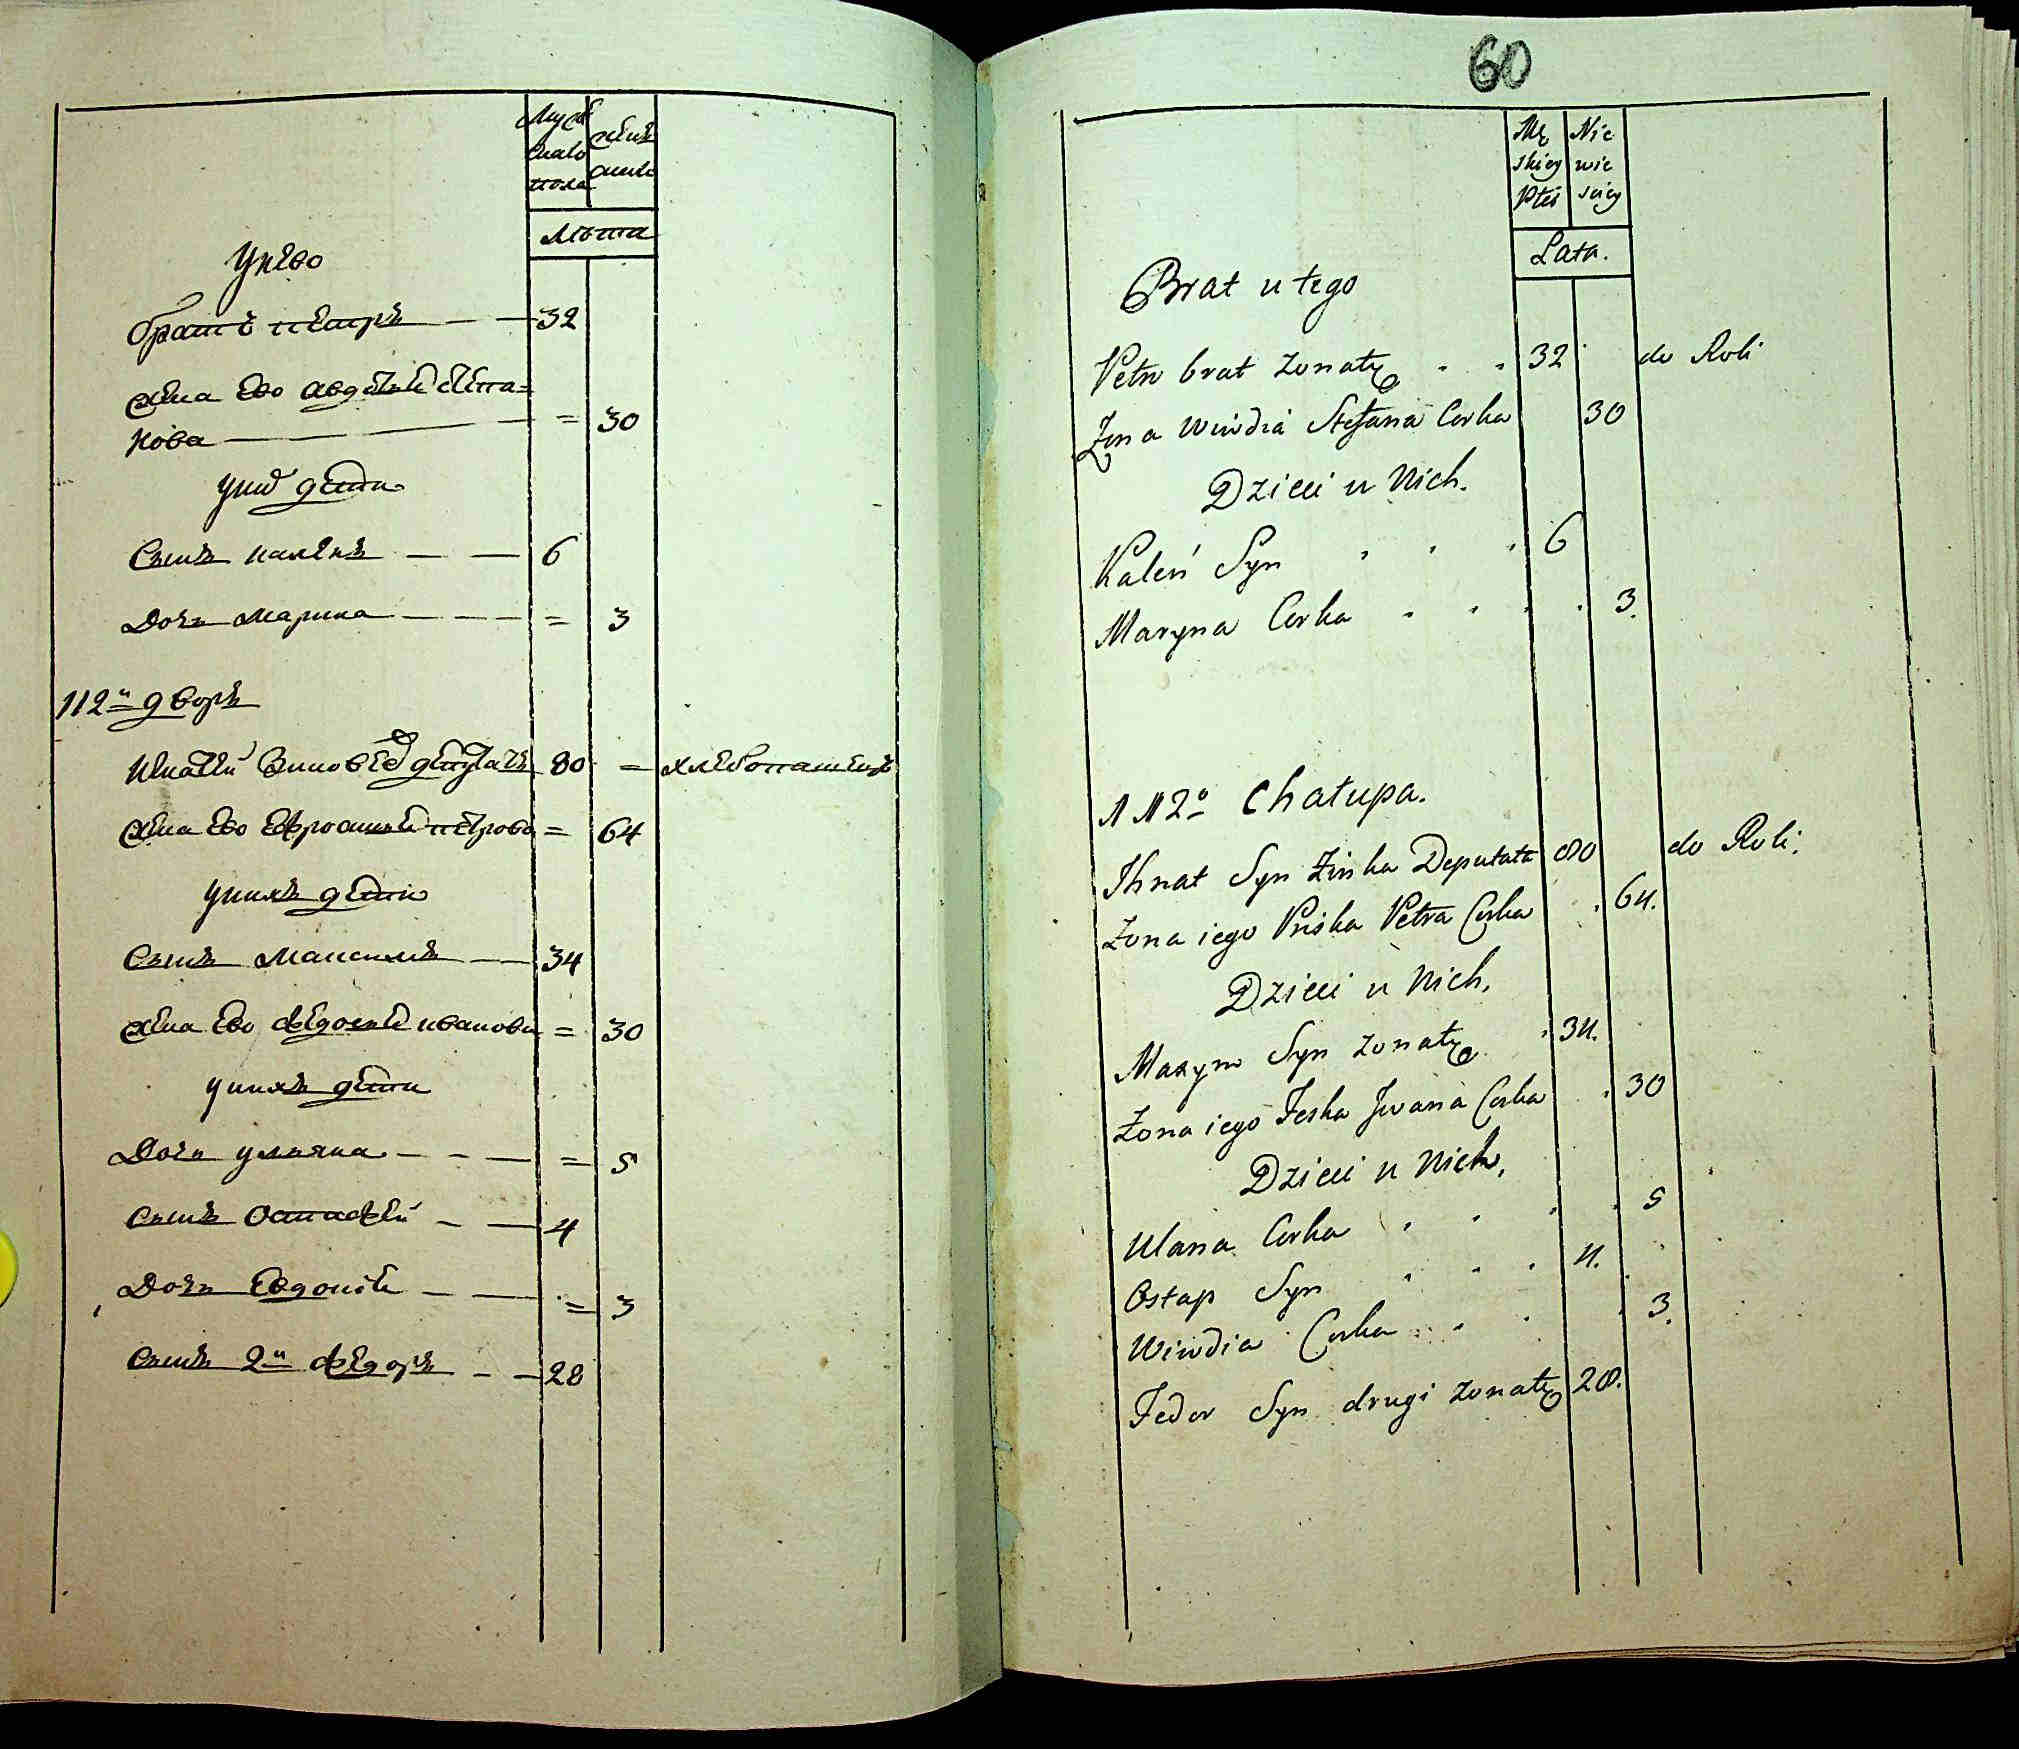 Мужескаго пола
женскаго
Лѣта
У него
братъ петръ — — 32
жена ево авдотья степа=
нова — = 30
у ниⷯ дети
Сынъ калѣнъ — — 6
Дочь марина — — — = 3
112й дворъ
Игнатей Зиновьев депутатъ 80 = хлебопашецъ
жена ево ефросинья петрова = 64
у нихъ дети
Сынъ Максимъ — 34
жена ево федосья иванова = 30
у нихъ дети
Дочь ульяна — — — = 5
сынъ Остафей — — 4
Дочь Евдокия — — = 3
сынъ 2й федоръ — — 28
60
Mę Nie
skiey wie
płci sciey
Lata.
Brat u tego
Petro brat żonaty 32 do Roli
Żona Wiwdia Stefana Corka 30
Dzieci u Nich.
Kaleń Syn 6
Maryna Corka 3.
112o Chałupa.
Ihnat Syn Zinka Deputata 80 do Roli.
Żona iego Priska Petra Corka 64.
Dzieci u Nich.
Maxym Syn żonaty 34.
Żona iego Feska Jwana Corka 30
Dzieci u Nich.
Ulana Corka 5
Ostap Syn 4.
Wiwdia Corka 3.
Fedor Syn drugi żonaty 28.